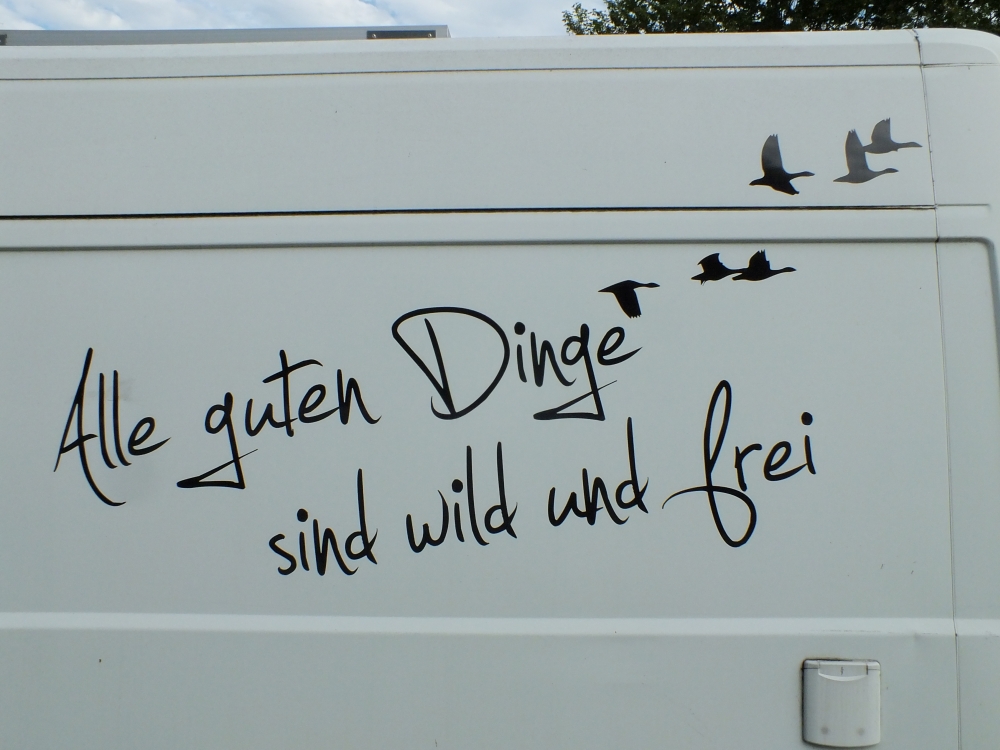 Alle guten Dinge
sind wild und frei